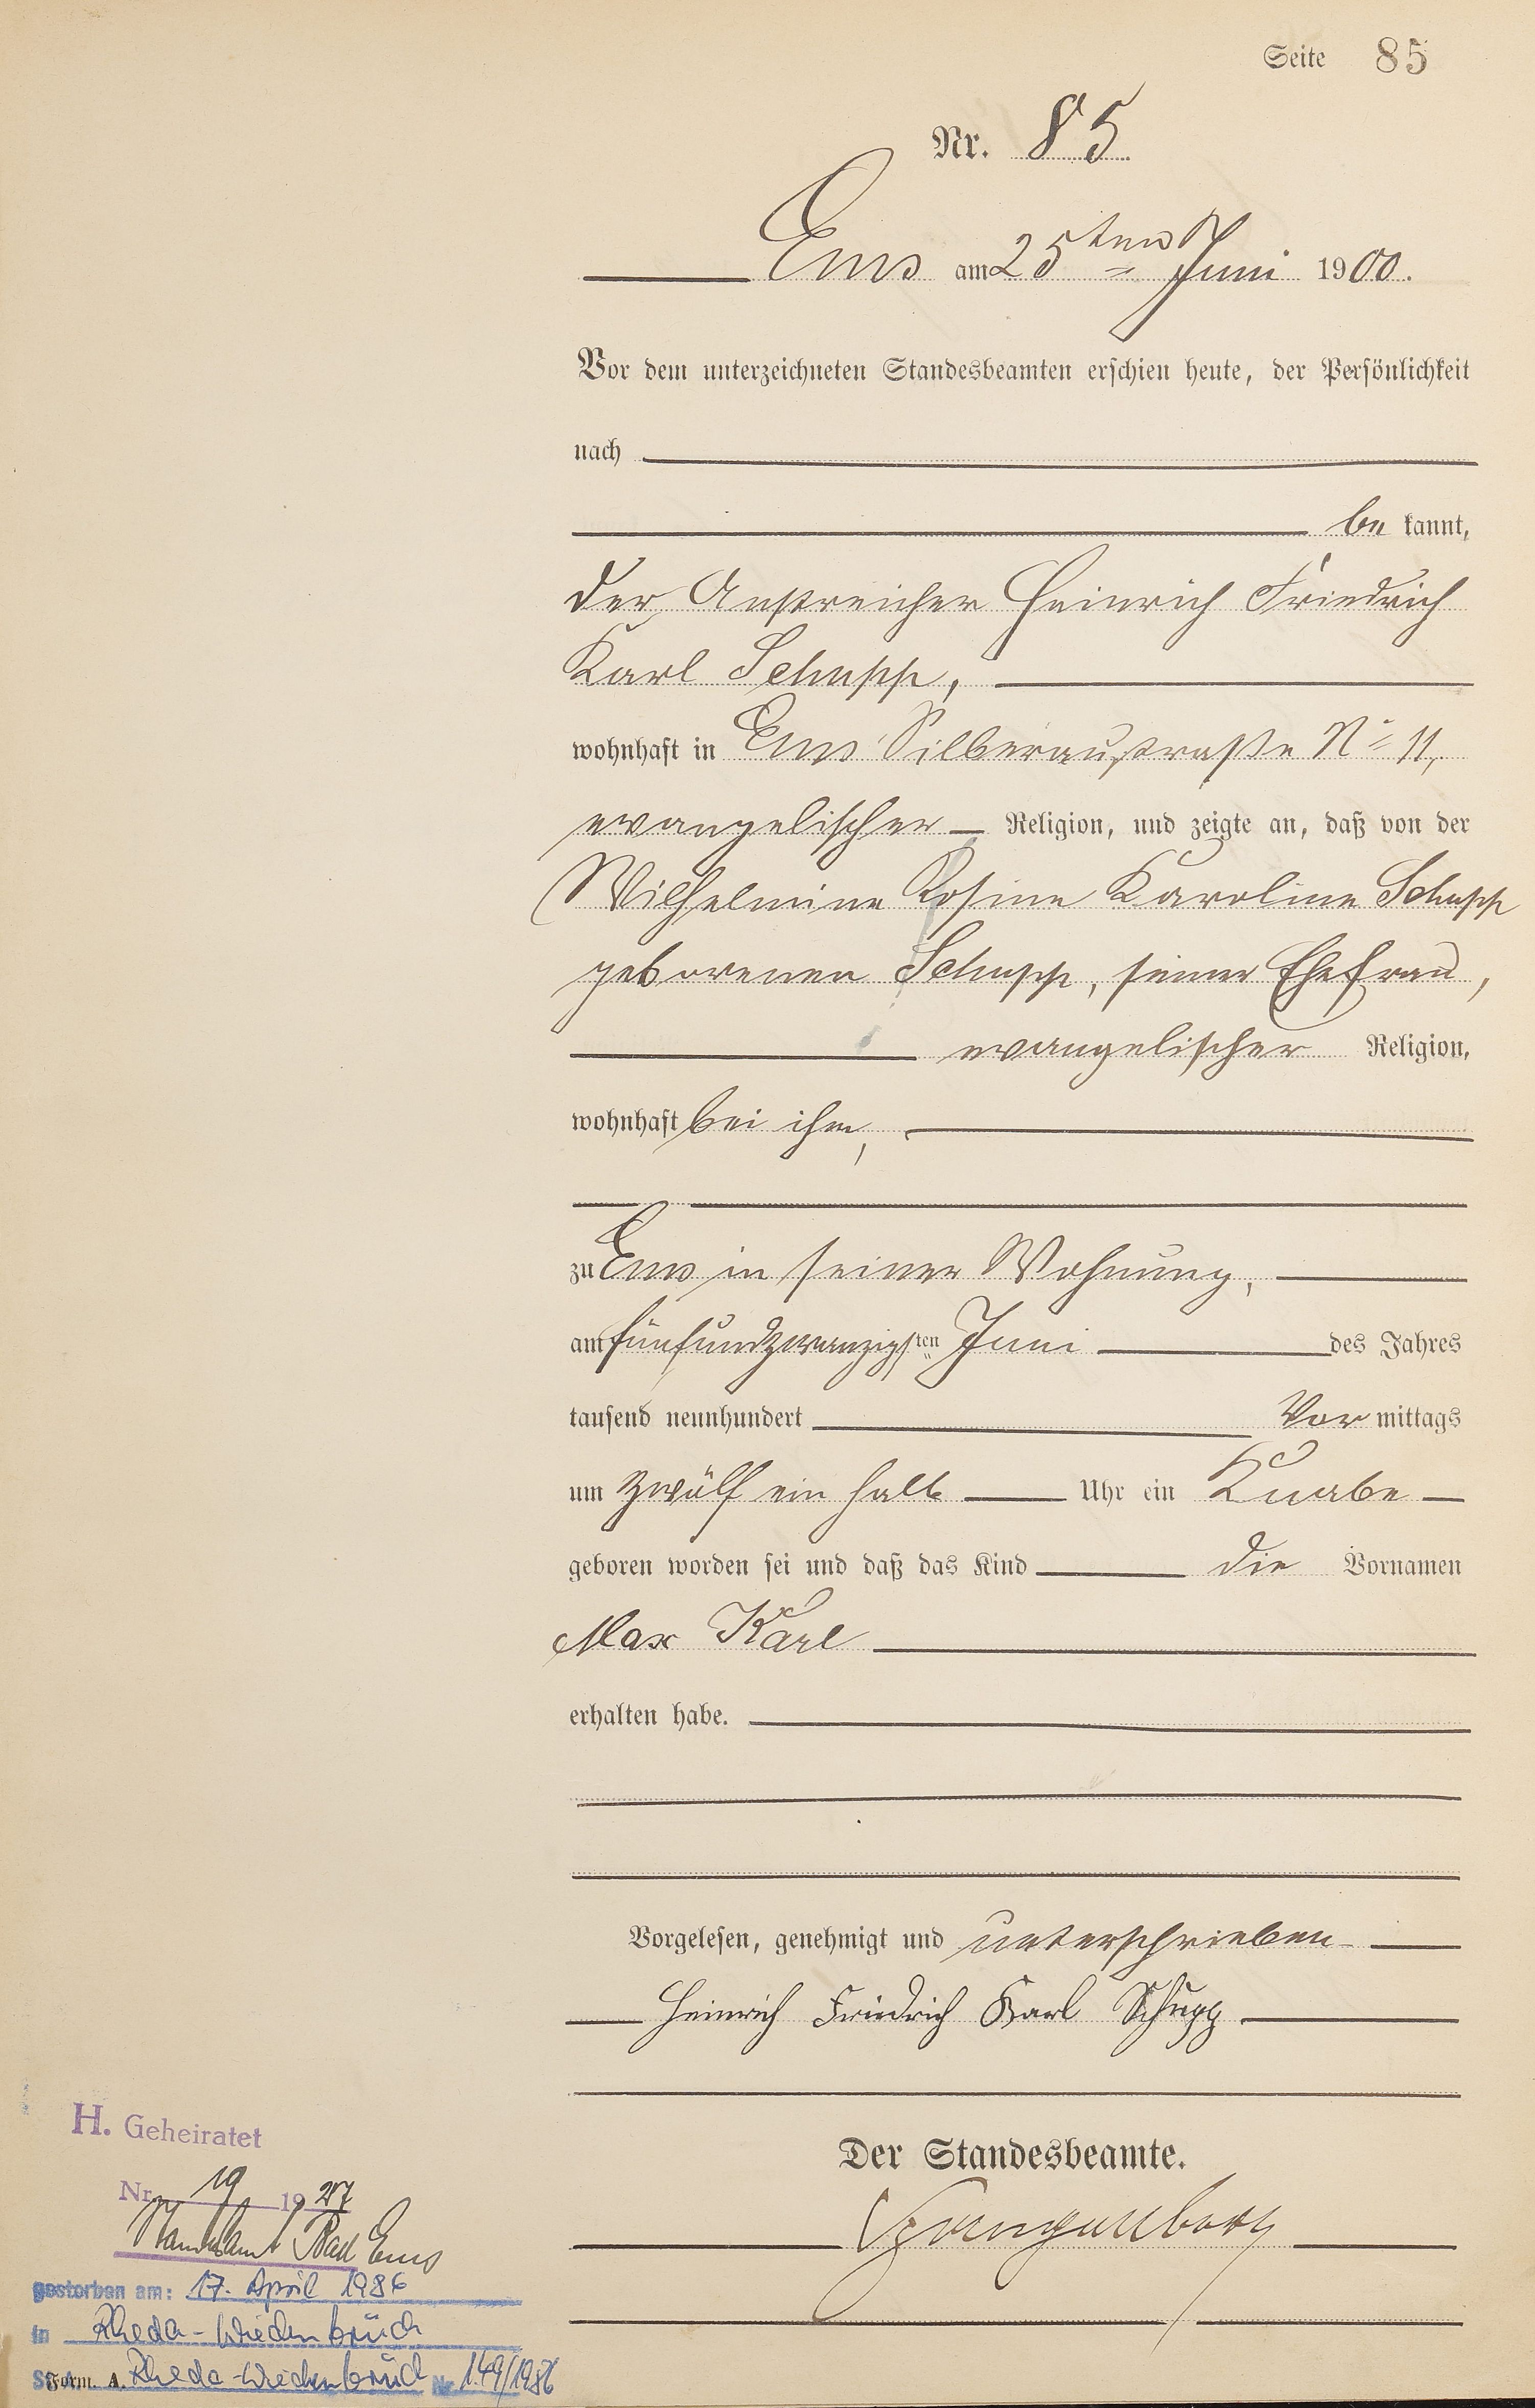 Seite 85
Nr. 85
Ems am 25ten Juni 1900.
Vor dem unterzeichneten Standesbeamten erschien heute, der Persönlichkeit
nach
be kannt,
der Anstreicher Heinrich Friedrich
Karl Schupp,
wohnhaft in Ems Silberaustraße No 11,
evangelischer Religion, und zeigte an, daß von der
Wilhelmine Rosine Karoline Schupp
geborenen Schupp, seiner Ehefrau,
evangelischer Religion,
wohnhaft bei ihm,
zu Ems in seiner Wohnung,
am fünfundzwanzigsten Juni des Jahres
tausend neunhundert Vor mittags
um zwölf ein halb Uhr ein Knabe
geboren worden sei und daß das Kind die Vornamen
Max Karl
erhalten habe.
Vorgelesen, genehmigt und unterschrieben
Heinrich Friedrich Karl Schupp
Der Standesbeamte.
H. Geheiratet
Nr. 19 1927
Standesamt Bad Ems
gestorben am: 17. April 1986
in Rheda-Wiedenbrück
Form. A. Rheda-Wiedenbrück Nr. 149/1986